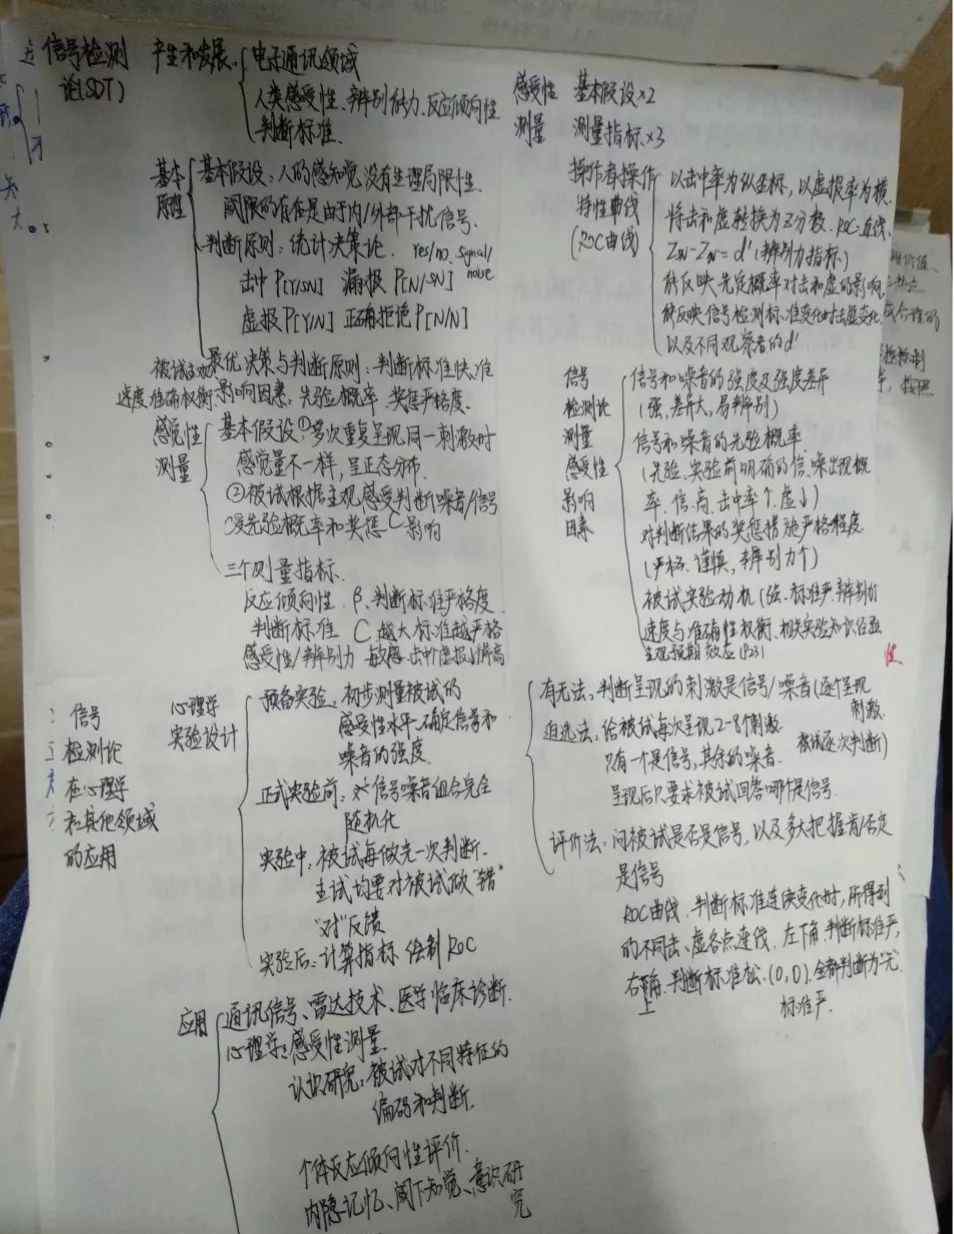 信号检测
论(SDT)
产生和发展.
电子通讯领域
人类感受性、辨别能力、反应倾向性
判断标准.
基本
原理
基本假设:人的感知觉没有生理局限性.
阈限的存在是由于内/外部干扰信号.
判断原则:统计决策论. yes/no signal/
noise
击中P[Y/SN] 漏报P[N/SN]
虚报P[Y/N] 正确拒绝P[N/N]
最优决策与判断原则:判断标准快、准
速度准确权衡.影响因素:先验概率、奖惩严格度.
感觉性
测量
基本假设:①多次重复呈现同一刺激时
感觉量不一样,呈正态分布.
②被试根据主观感受判断噪音/信号
受先验概率和奖惩 影响
三个测量指标.
反应倾向性 β、判断标准严格度.
判断标准 C 越大标准越严格
感受性/辨别力 敏感.击中↑虚报↓情高
感受性 基本假设×2
测量 测量指标×3
操作者操作
特性曲线
(ROC曲线)
以击中率为纵坐标,以虚报率为横.
将击和虚转换为Z分数.ROC-直线、
Zsn-Zn=d'(辨别力指标)
能反映先定概率对击和虚的影响
能反映信号检测标准变化时击虚变化.
以及不同观察者的d'
信号
检测论
测量
感受性
影响
因素
信号和噪音的强度及强度差异
(强、差异大,易辨别)
信号和噪音的先验概率
(先验.实验前明确的信、噪出现概
率.信、高.击中率↑.虚↓)
对判断结果的奖惩措施严格程度
(严格.谨慎,辨别力↑)
被试实验动机(强.标准严.辨别力↑
速度与准确性权衡.相关实验知识经验
主观预期效应(P23)
信号
检测论
在心理学
和其他领域
的应用
心理学
实验设计
预备实验:初步测量被试的
感受性水平、确定信号和
噪音的强度.
正式实验前:对信号噪音组合完全
随机化
实验中:被试每做完一次判断.
主试均要对被试做“错”
“对”反馈
实验后:计算指标 绘制ROC
有无法:判断呈现的刺激是信号/噪音(逐个呈现
刺激.
被试逐次判断)
迫选法:给被试每次呈现2-8个刺激
只有一个是信号,其余的噪音.
呈现后只要求被试回答哪个是信号.
评价法:问被试是否是信号,以及多大把握肯/否定
是信号
ROC曲线.判断标准连续变化时,所得到
的不同击、虚各点连线.左下角.判断标准严,
右上角.判断标准松.(0,0).全都判断为“无”.
标准严.
应用
通讯信号、雷达技术、医学临床诊断.
心理学:感受性测量.
认识研究:被试对不同特征的
编码和判断.
个体反应倾向性评价.
内隐记忆、阈下知觉、意识研
究